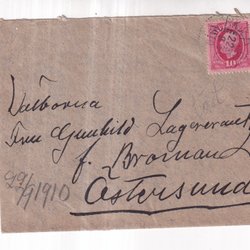 Välborna
Fru Gunhild Lagercrant
f. Broman
Östersund
29/7 1910
10